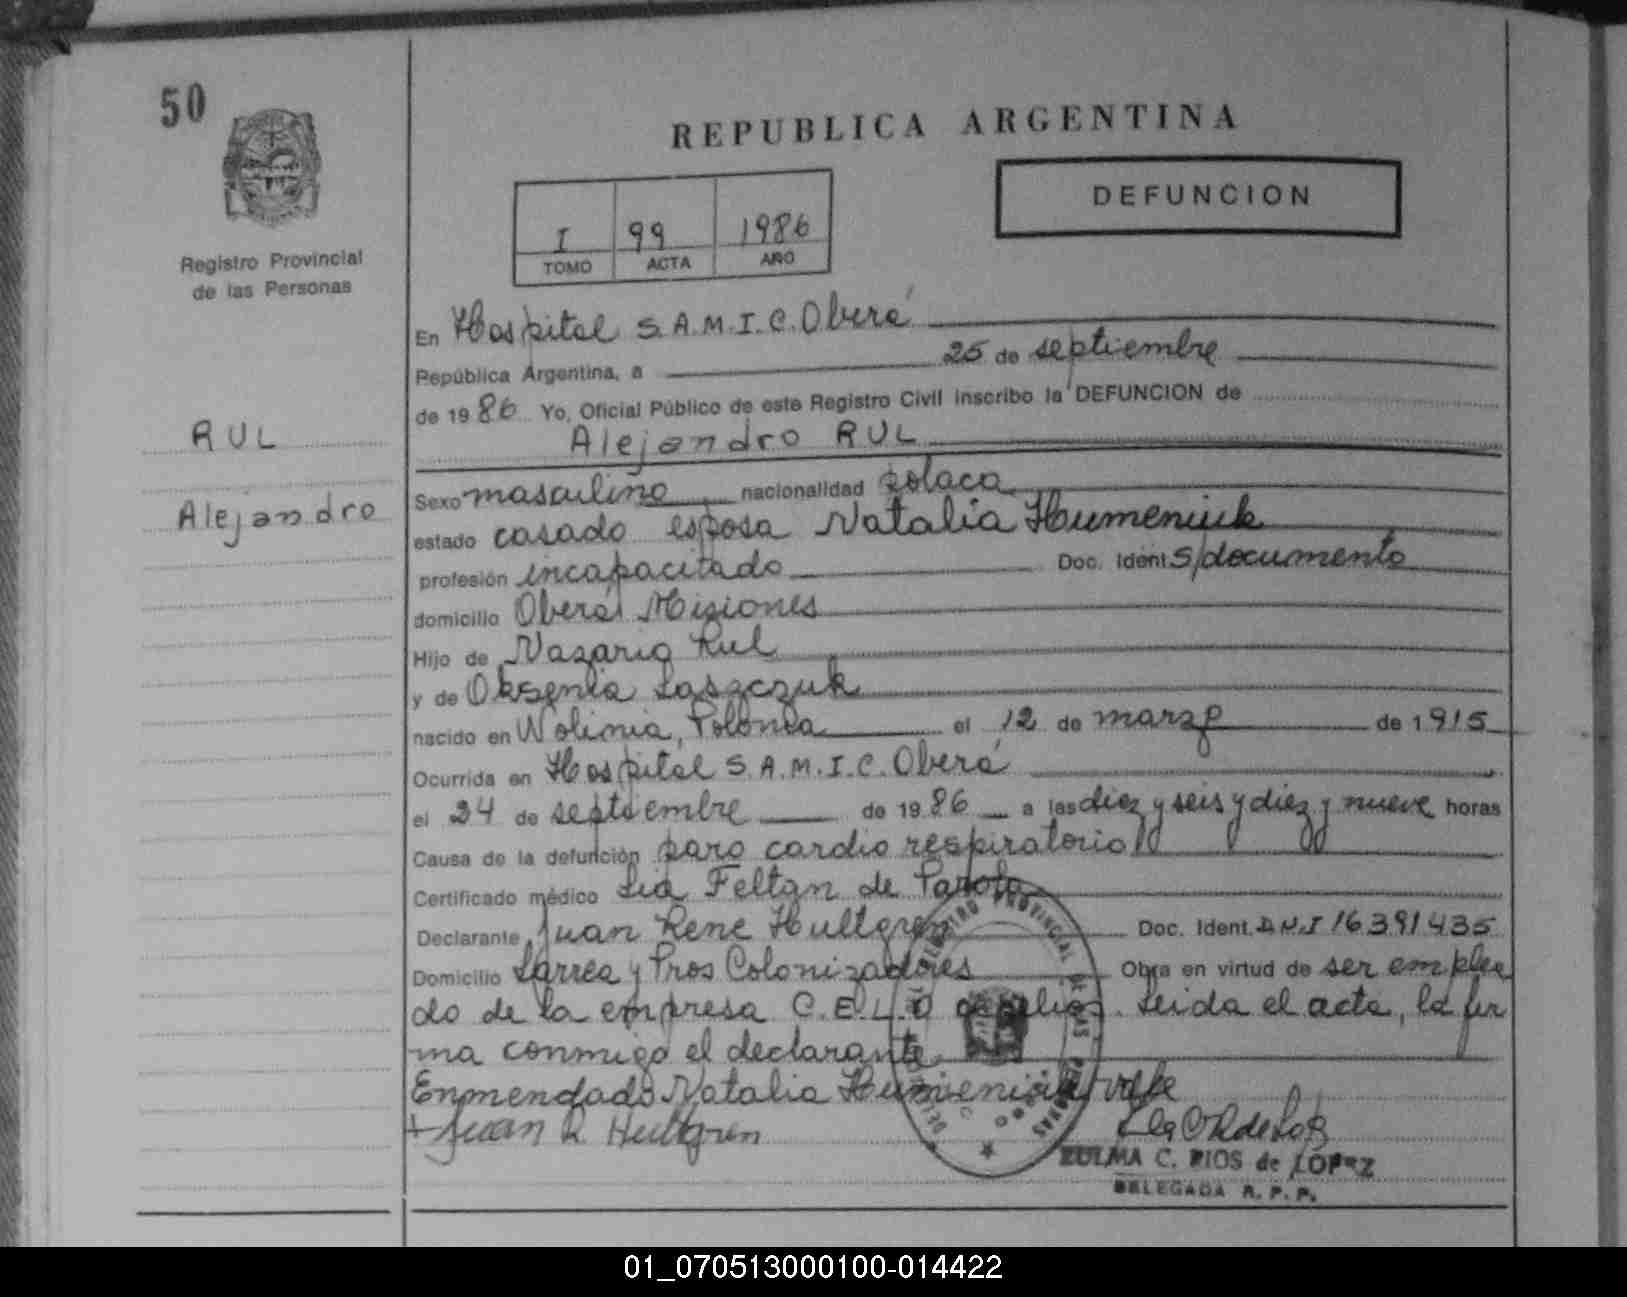 50
REPUBLICA ARGENTINA
DEFUNCION
I 99 1986
TOMO ACTA AÑO
Registro Provincial
de las Personas
RUL
Alejandro
En Hospital S.A.M.I.C. Oberá
República Argentina, a 25 de septiembre
de 1986 Yo, Oficial Público de este Registro Civil inscribo la DEFUNCION de
Alejandro RUL
Sexo masculino nacionalidad polaca
estado casado esposa Natalia Humeniuk
profesión incapacitado Doc. Ident S/documento
domicilio Oberá Misiones
Hijo de Nazario Rul
y de Oksenia Laszczuk
nacido en Wolinia, Polonia el 12 de marzo de 1915
Ocurrida en Hospital S.A.M.I.C. Oberá
el 24 de septiembre de 1986 a las diez y seis y diez y nueve horas
Causa de la defunción paro cardio respiratorio
Certificado médico Lia Feltan de Parola
Declarante Juan Rene Hultgren Doc. Ident. DNI 16391435
Domicilio Larrea y Pros Colonizadores Obra en virtud de ser emplea
do de la empresa C.E.L.O sepelios. Leida el acta, la fir
ma conmigo el declarante
Enmendado Natalia Humeniuk vale
Juan R. Hultgren
ZULMA C. RIOS de LÓPEZ
DELEGADA R. P. P.
01_070513000100-014422